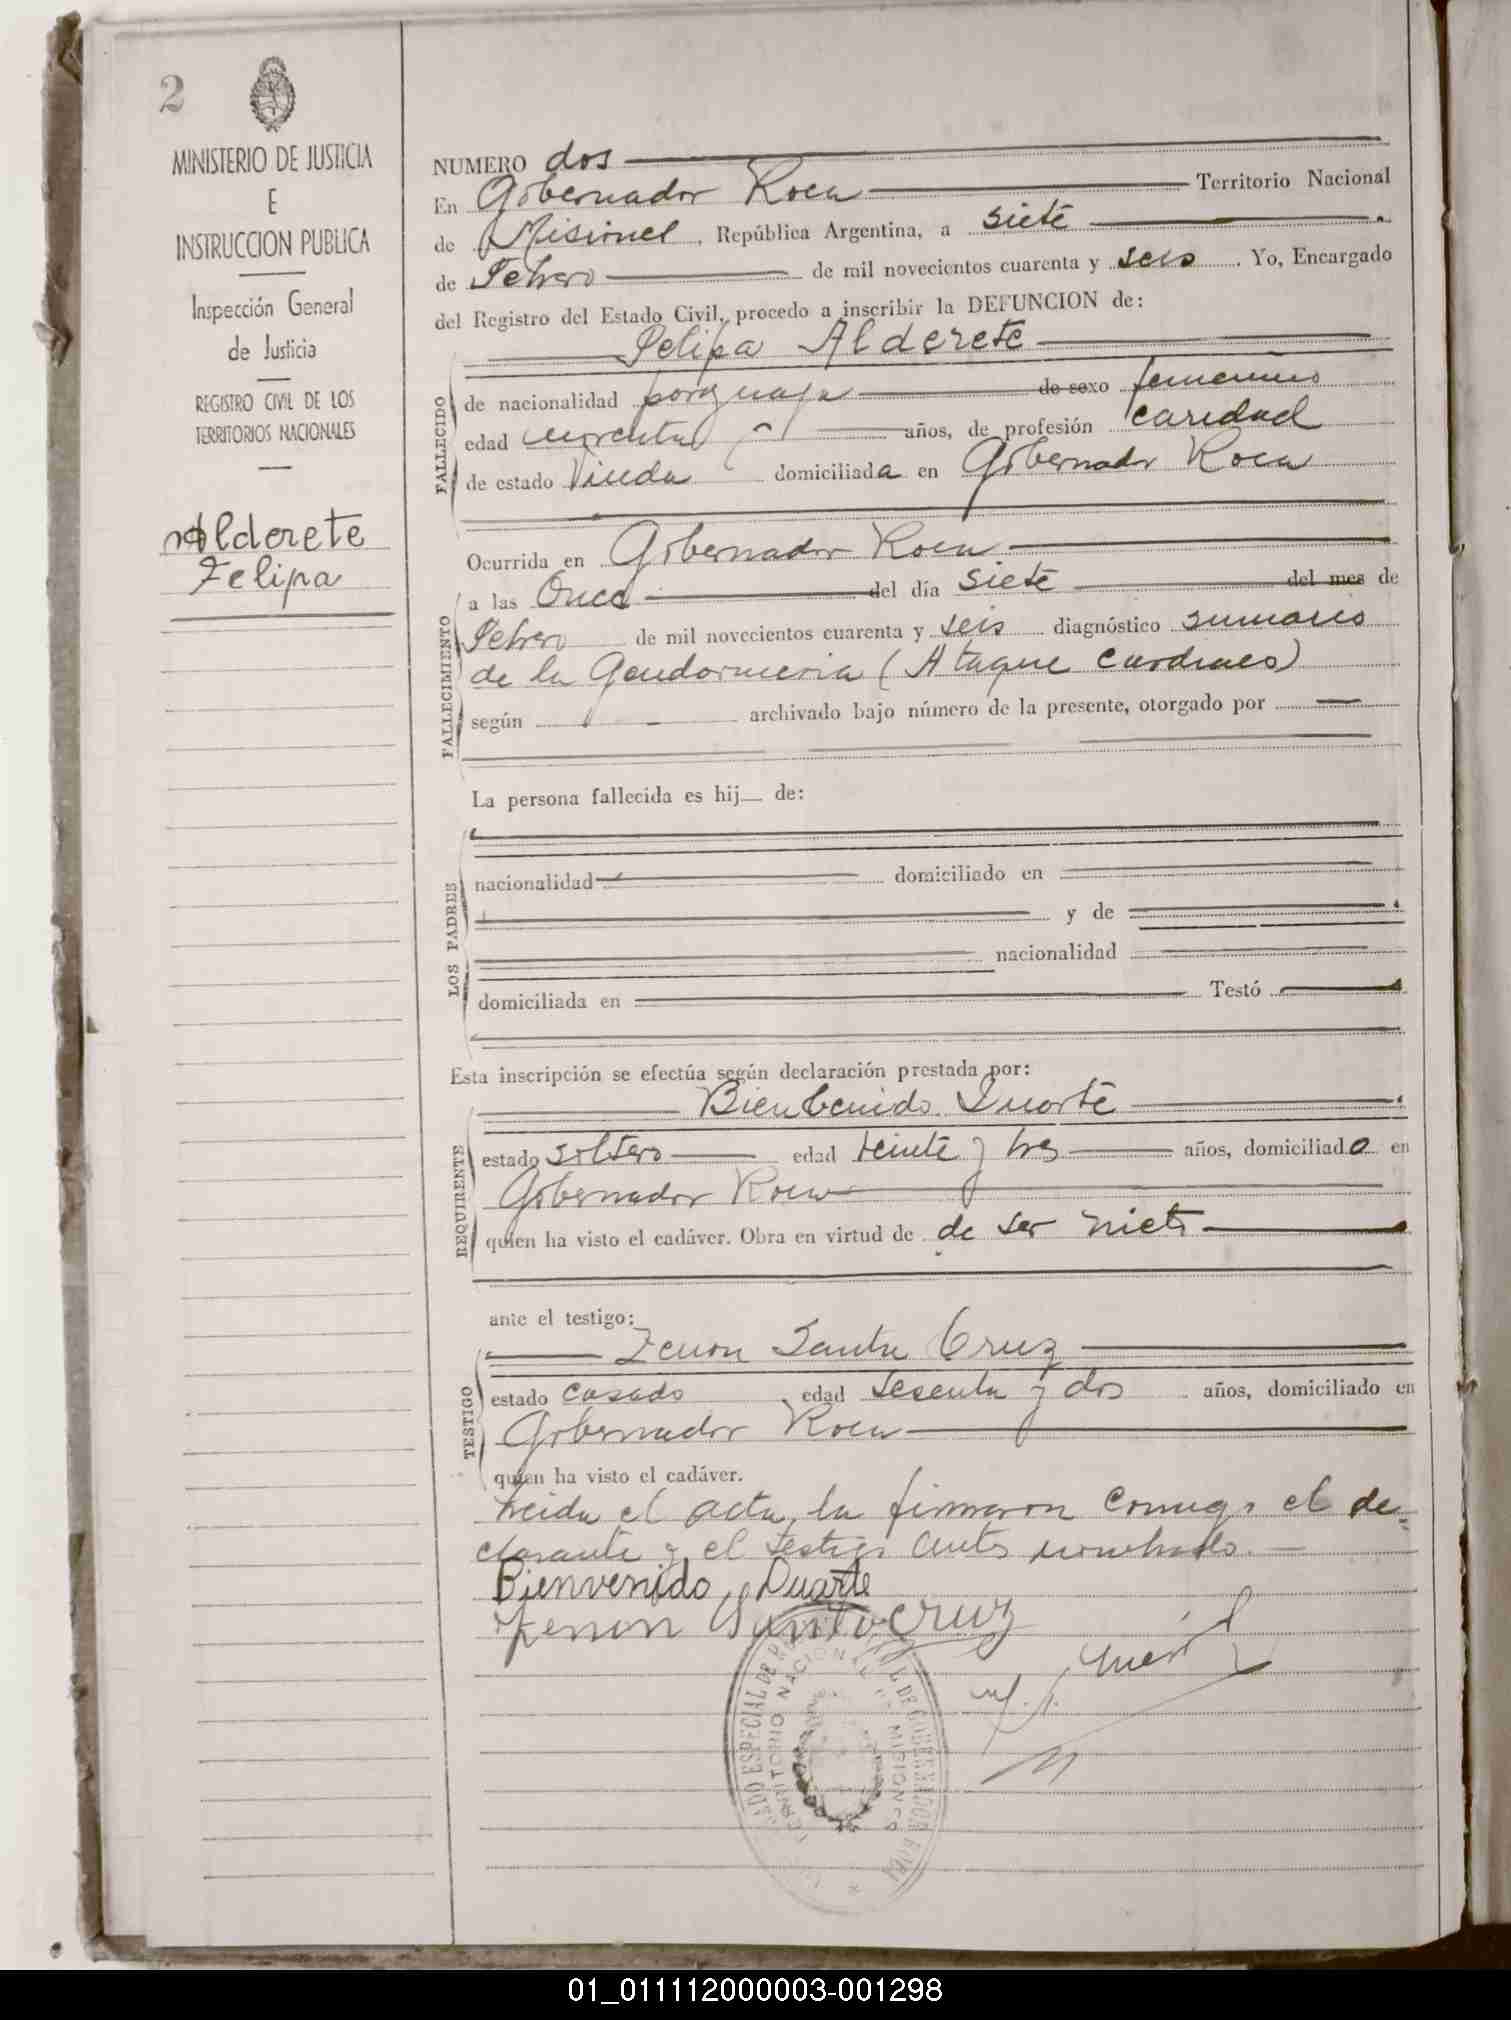 2
MINISTERIO DE JUSTICIA
E
INSTRUCCION PUBLICA
Inspección General
de Justicia
REGISTRO CIVIL DE LOS
TERRITORIOS NACIONALES
Alderete
Felipa
NUMERO dos
En Gobernador Roca Territorio Nacional
de Misiones, República Argentina, a siete
de Febrero de mil novecientos cuarenta y seis. Yo, Encargado
del Registro del Estado Civil, procedo a inscribir la DEFUNCION de:
Felipa Alderete
FALLECIDO
de nacionalidad paraguaya de sexo femenino
edad años, de profesión caridad
de estado Viuda domiciliada en Gobernador Roca
FALLECIMIENTO
Ocurrida en Gobernador Roca
a las Once del día siete del mes de
Febrero de mil novecientos cuarenta y seis diagnóstico sumario
de la Gendarmeria (Ataque Cardiaco)
según archivado bajo número de la presente, otorgado por
La persona fallecida es hij de:
LOS PADRES
nacionalidad domiciliado en
y de
nacionalidad
domiciliada en Testó
Esta inscripción se efectúa según declaración prestada por:
Bienbenido Duarte
REQUIRENTE
estado soltero edad veinte y tres años, domiciliado en
Gobernador Roca
quien ha visto el cadáver. Obra en virtud de de ser nieto
ante el testigo:
Zenon Santa Cruz
TESTIGO
estado casado edad sesenta y dos años, domiciliado en
Gobernador Roca
quien ha visto el cadáver.
Leida el acta, la firmaron conmigo el de=
clarante y el testigo antes nombrado.
Bienvenido Duarte
Zenon Santa cruz
ESPECIAL DE GOBERNADOR ROCA
TERRITORIO NACIONAL DE MISIONES
01_011112000003-001298